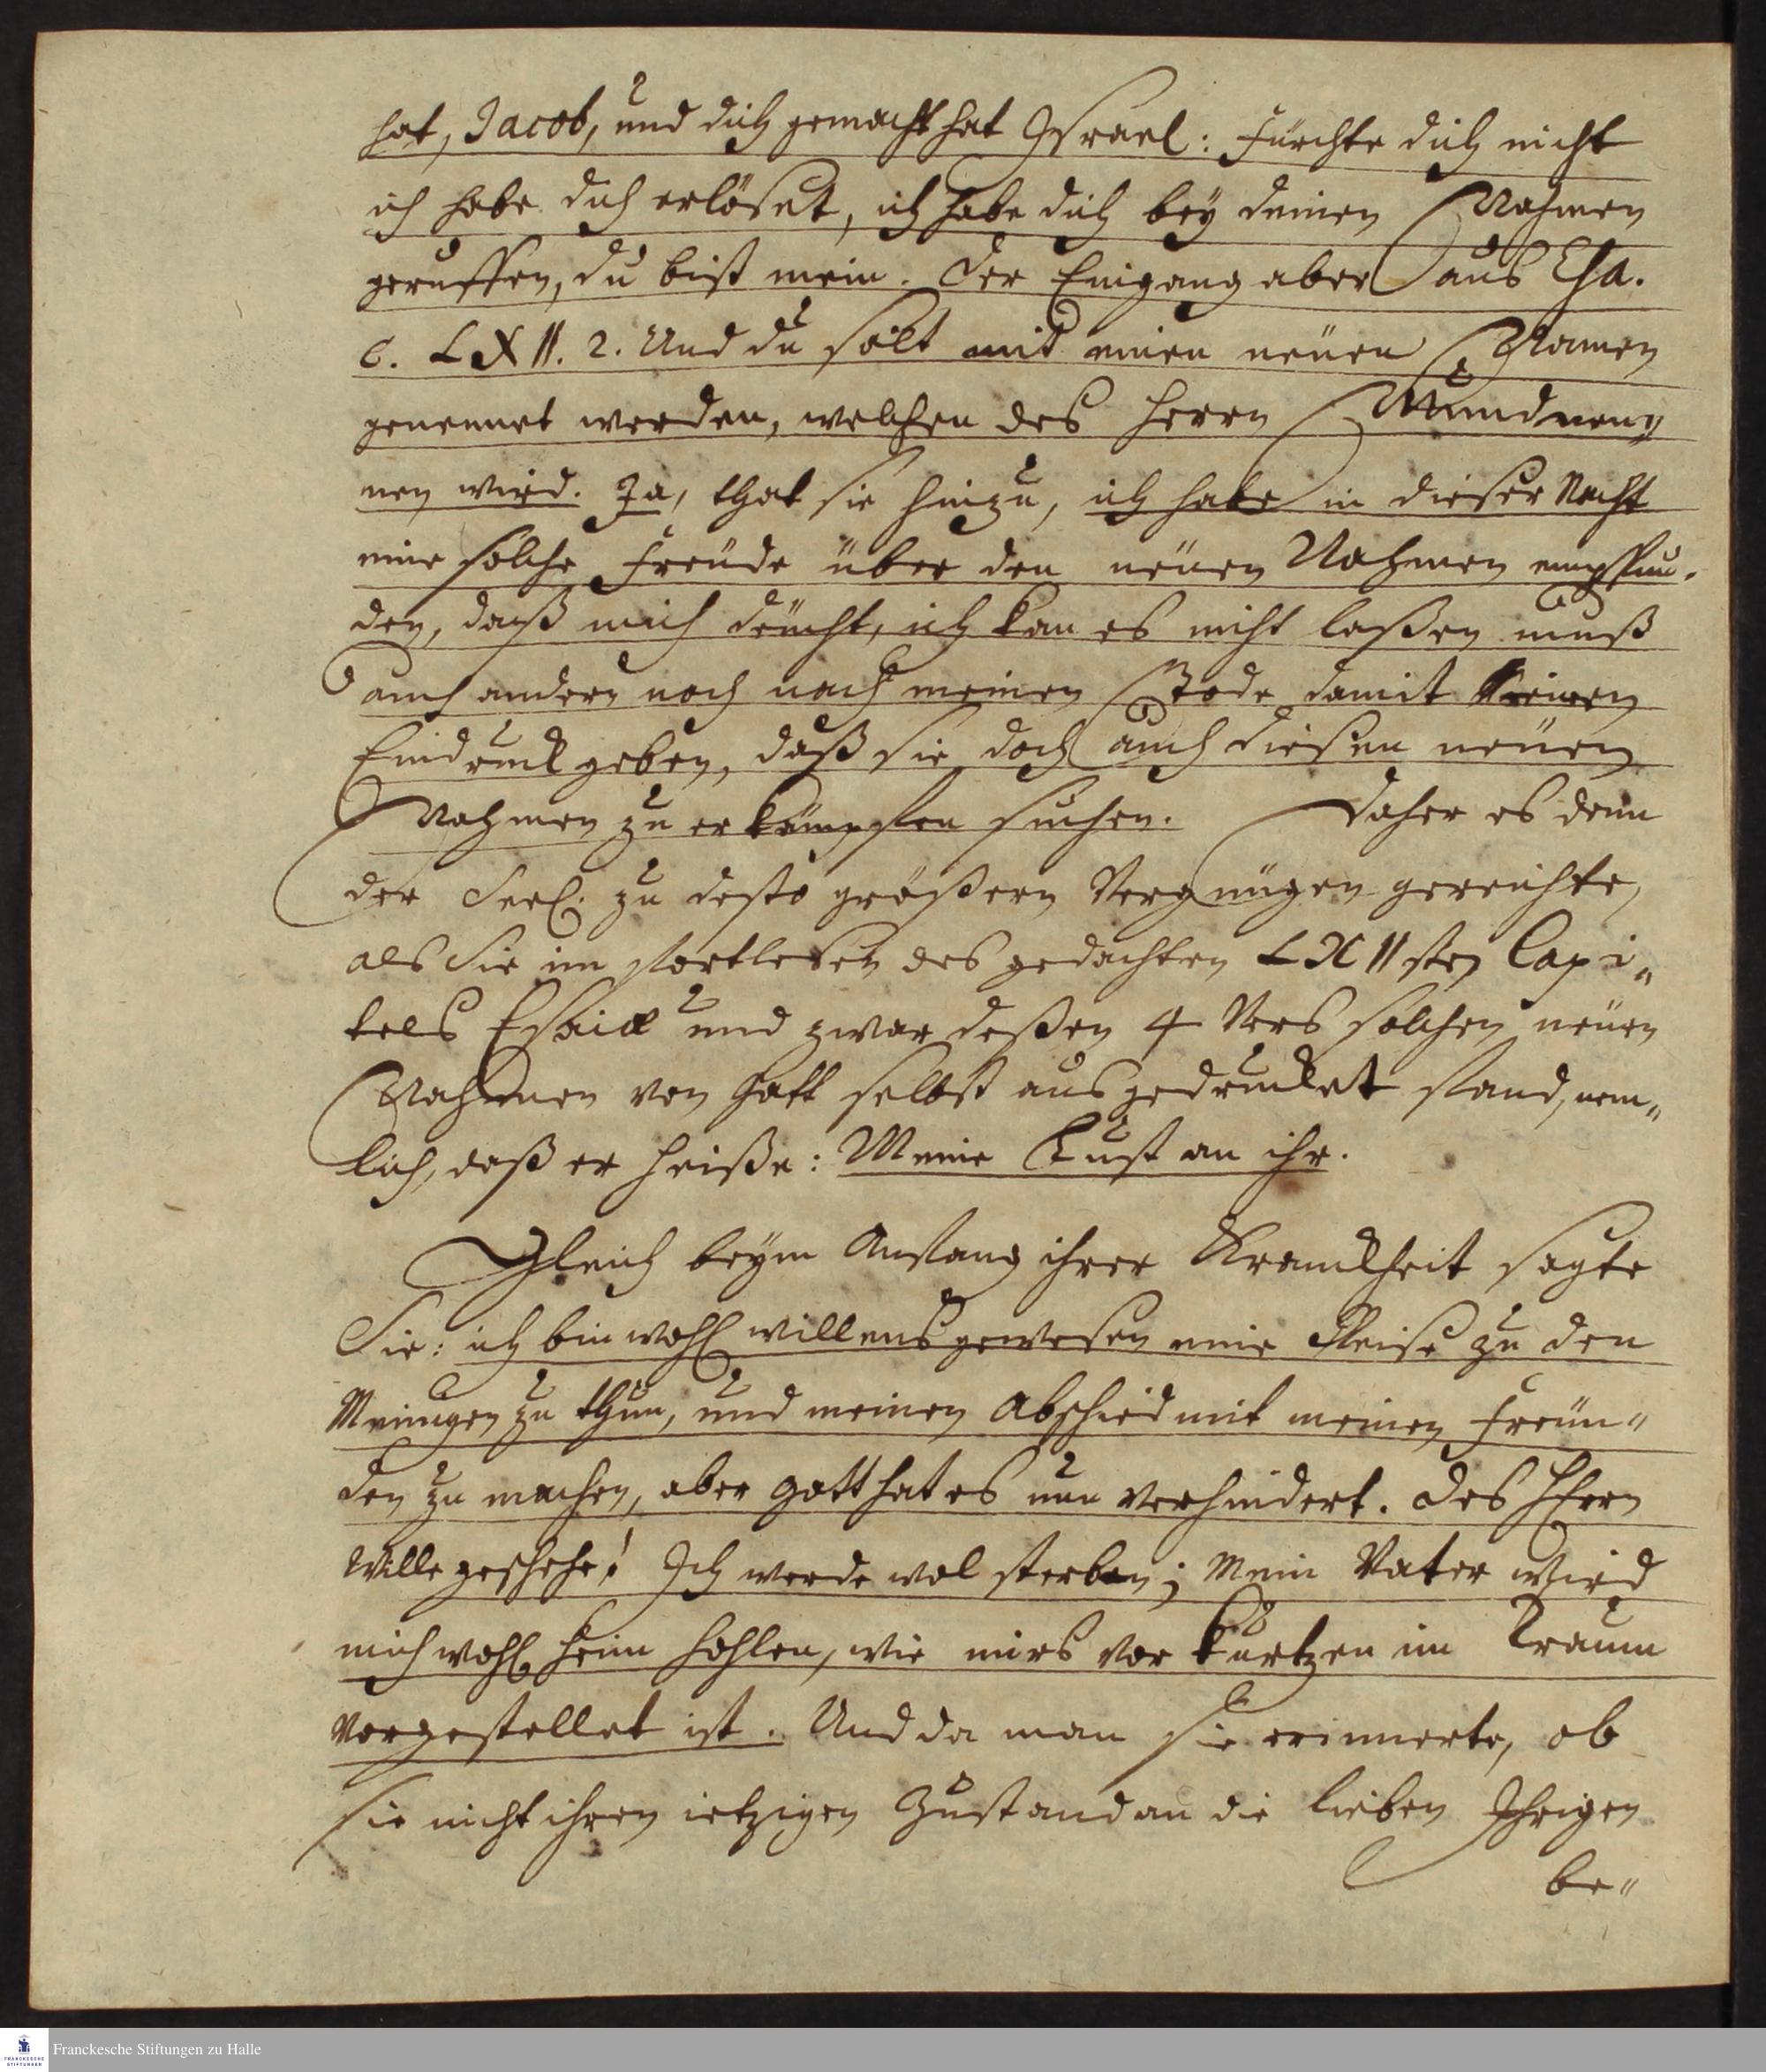 hat, Jacob, und dich gemacht hat Israel: Fürchte dich nicht
ich habe dich erlöset, ich habe dich bey deinen Nahmen
geruffen, du bist mein. Der Eingang aber aus Esa.
c. LXII. 2. Und du solt mit einen neuen Namen
genennet werden, welchen des Herrn Mund nen„
nen wird. Ja, that sie hinzu, ich habe in dieser Nacht
eine solche Freude über den neuen Nahmen empfun-
den, daß mich deucht, ich kan es nicht laßen muß
auch andern noch nach meinen Tode damit einen
Eindruck geben, daß sie doch auch diesen neuen
Nahmen zu erkämpfen suchen. Daher es denn
der Seel. zu desto größern Vergnügen gereichte,
als Sie im fortlesen des gedachten LXIIsten Capi„
tels Esaiæ und zwar deßen 4 Vers solchen neuen
Nahmen von Gott selbst ausgedrucket fand, nem„
lich, daß er heiße: Meine Lust an ihr.
Gleich beym Anfang ihrer Kranckheit sagte
Sie: ich bin wohl willens gewesen eine Reise zu den
Meinigen zu thun, und meinen Abschied mit meinen Freun„
den zu machen, aber Gott hat es nun verhindert. Des HErrn
Wille geschehe! Ich werde wol sterben; Mein Vater wird
mich wohl heim hohlen, wie mirs vor kurtzen im Traum
vorgestellet ist. Und da man sie erinnerte, ob
sie nicht ihren ietzigen Zustand an die lieben Ihrigen
be„
Franckesche Stiftungen zu Halle
FRANCKESCHE
STIFTUNGEN